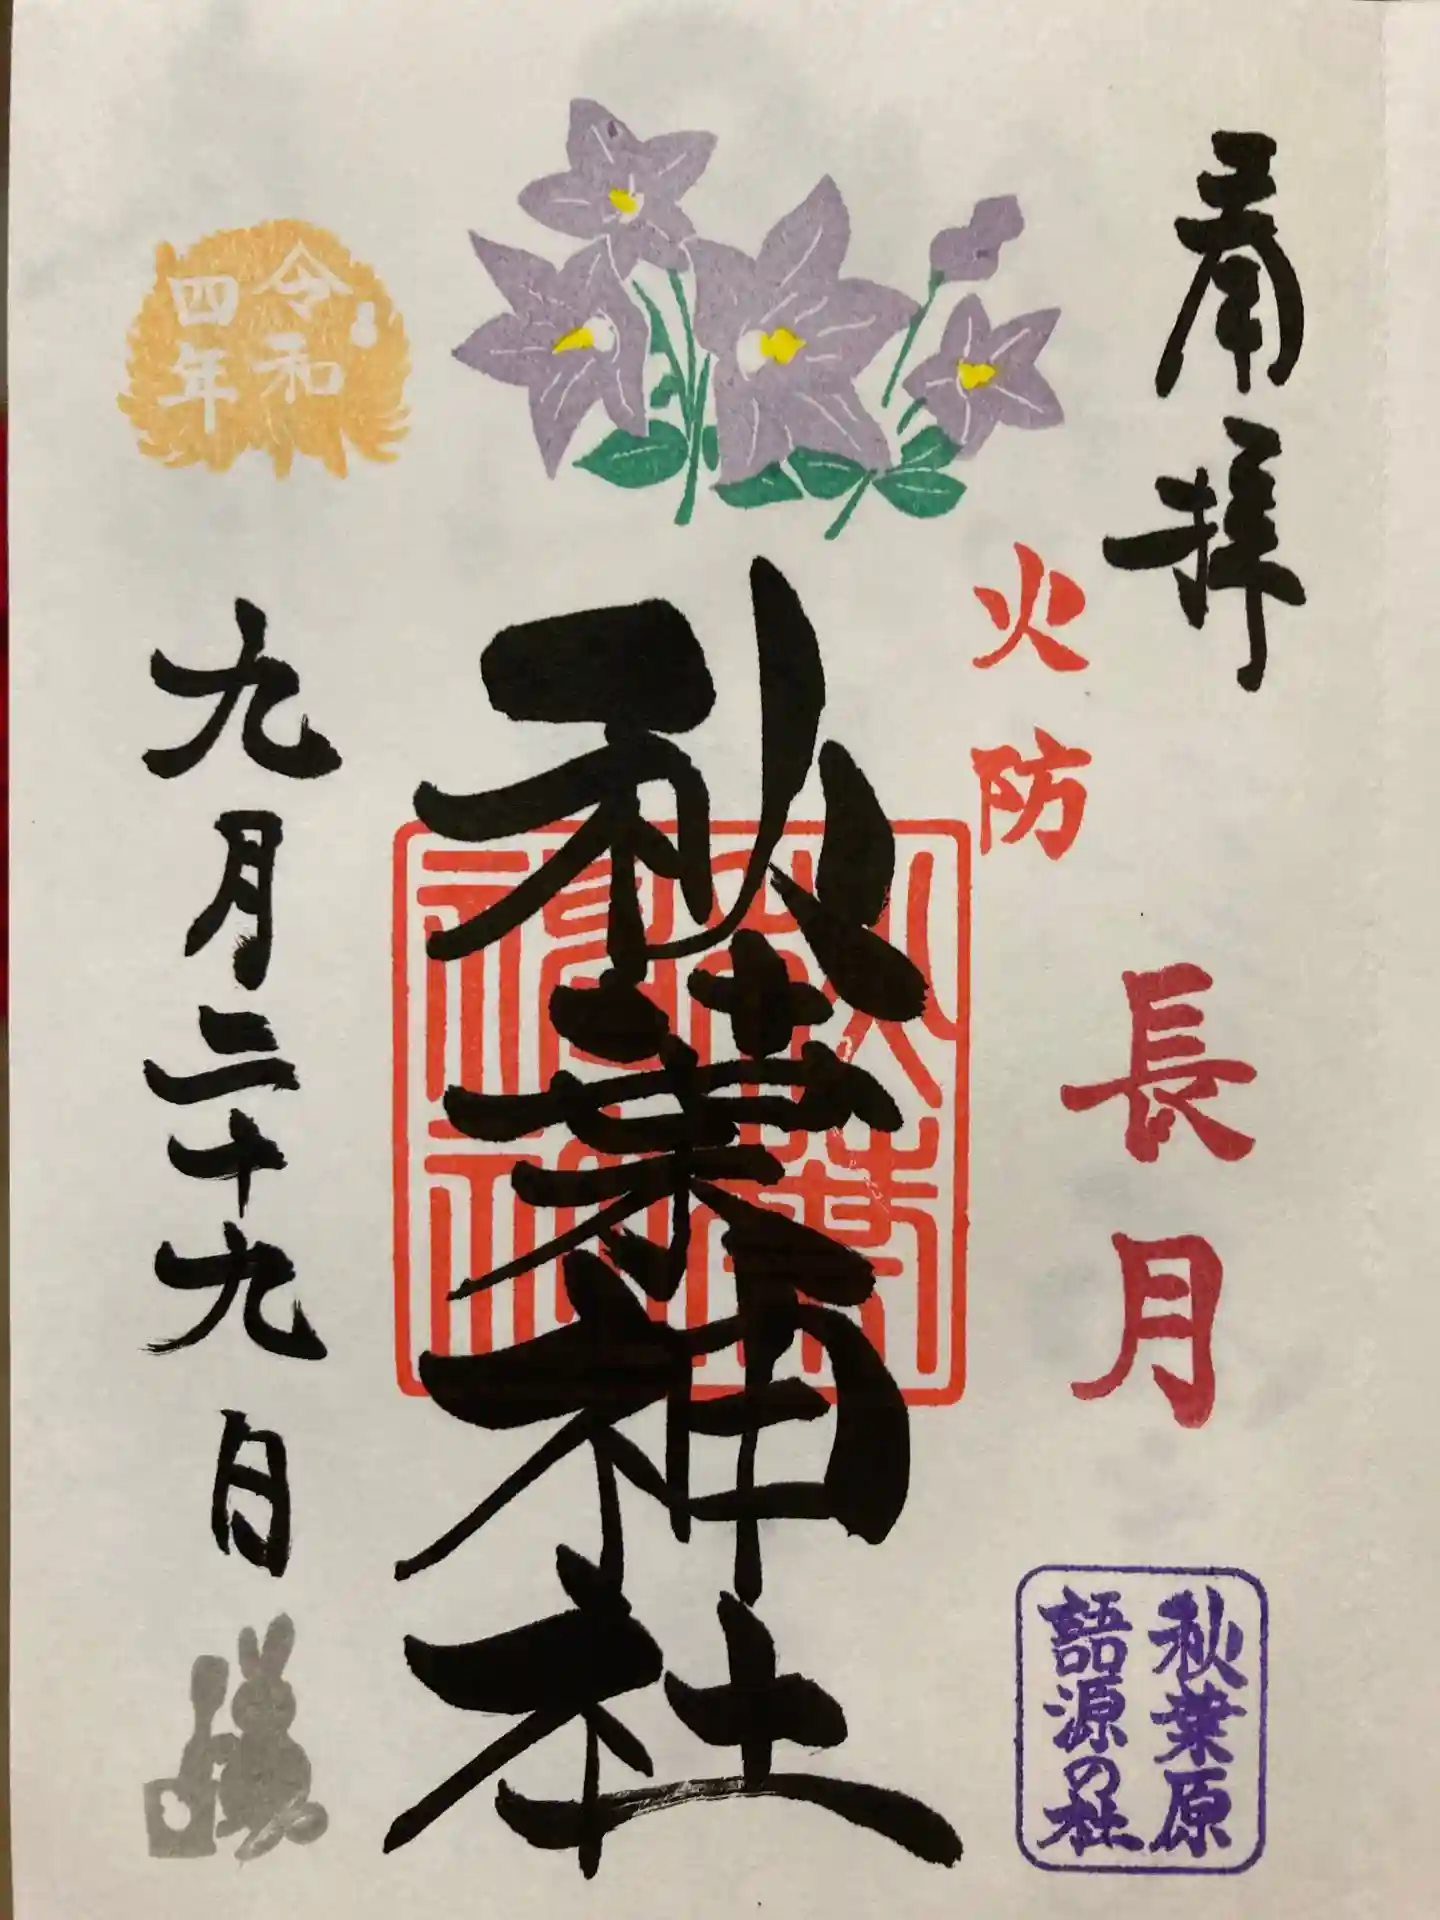 奉拝
火防
長月
秋葉原
語源の社
秋葉神社
令和
四年
九月二十九日